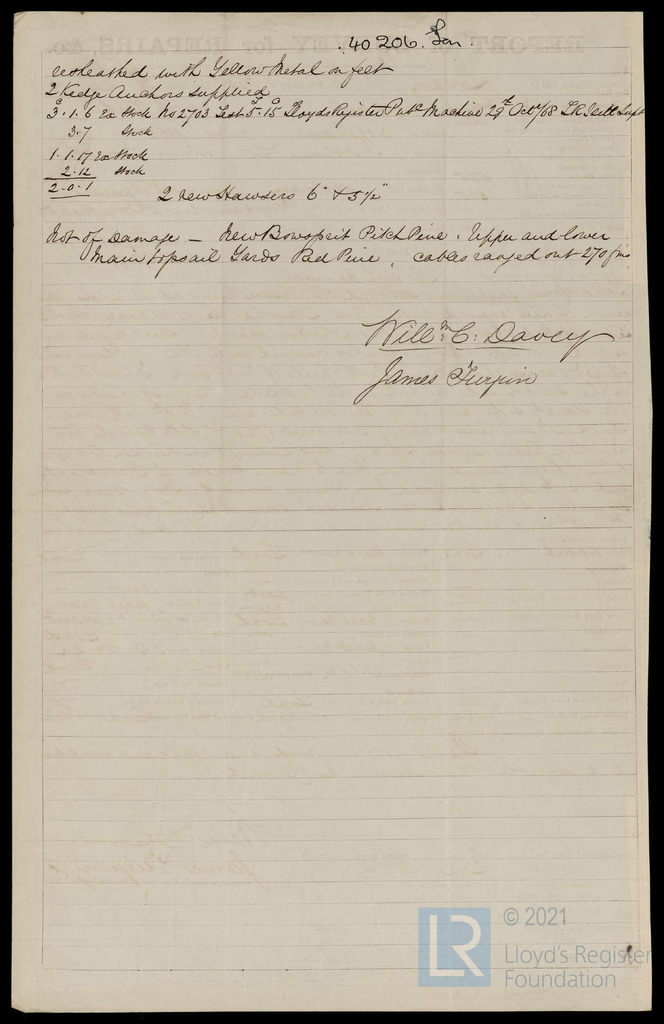 40206. Lon.
resheathed with Yellow Metal on felt
2 Kedge Anchors supplied
3.1.6 ex Stock No 2703 Test 5.15 Lloyds Register Pubc Machine 29t Octr/68 Supt
3.7 Stock
1.1.17 ex Stock
2.12 Stock
2.0.1
2 new Hawsers 6" & 5½"
Not of Damage — New Bowsprit Pitch Pine. Upper and lower
Main topsail Yards Red Pine. cables ranged out 270 fms
Willm C: Davey
James Turpin
© 2021
LR
Lloyd's Register
Foundation